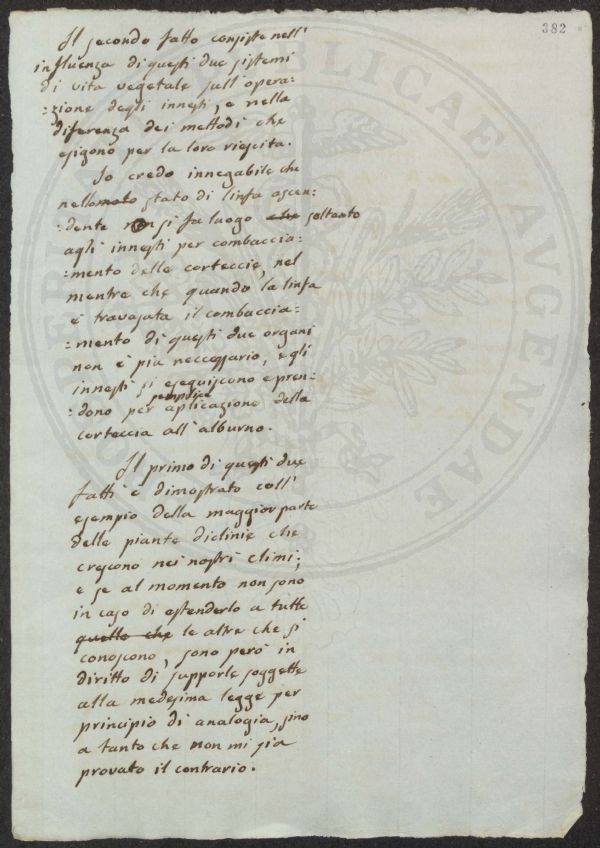 382
Il secondo fatto consiste nell'
influenza di questi due sistemi
di vita vegetale sull'opera=
=zione degli innesti, e nella
diferenza dei mettodi che
esigono per la loro riescita.
Io credo innegabile che
nello stato di linfa ascen=
=dente non si fa luogo soltanto
agli innesti per combaccia=
=mento delle corteccie, nel
mentre che quando la linfa
è travasata il combaccia=
=mento di questi due organi
non è più neccessario, e gli
innesti si eseguiscono e pren=
=dono per semplice aplicazione della
corteccia all'alburno.
Il primo di questi due
fatti è dimostrato coll'
esempio della maggior parte
delle piante diclinie che
crescono nei nostri climi;
e se al momento non sono
in caso di estenderlo a tutte
quelle che le altre che si
conoscono, sono però in
diritto di supporle soggette
alla medesima legge per
principio di analogia, sino
a tanto che non mi sia
provato il contrario.
PUBLICAE AUGENDAE